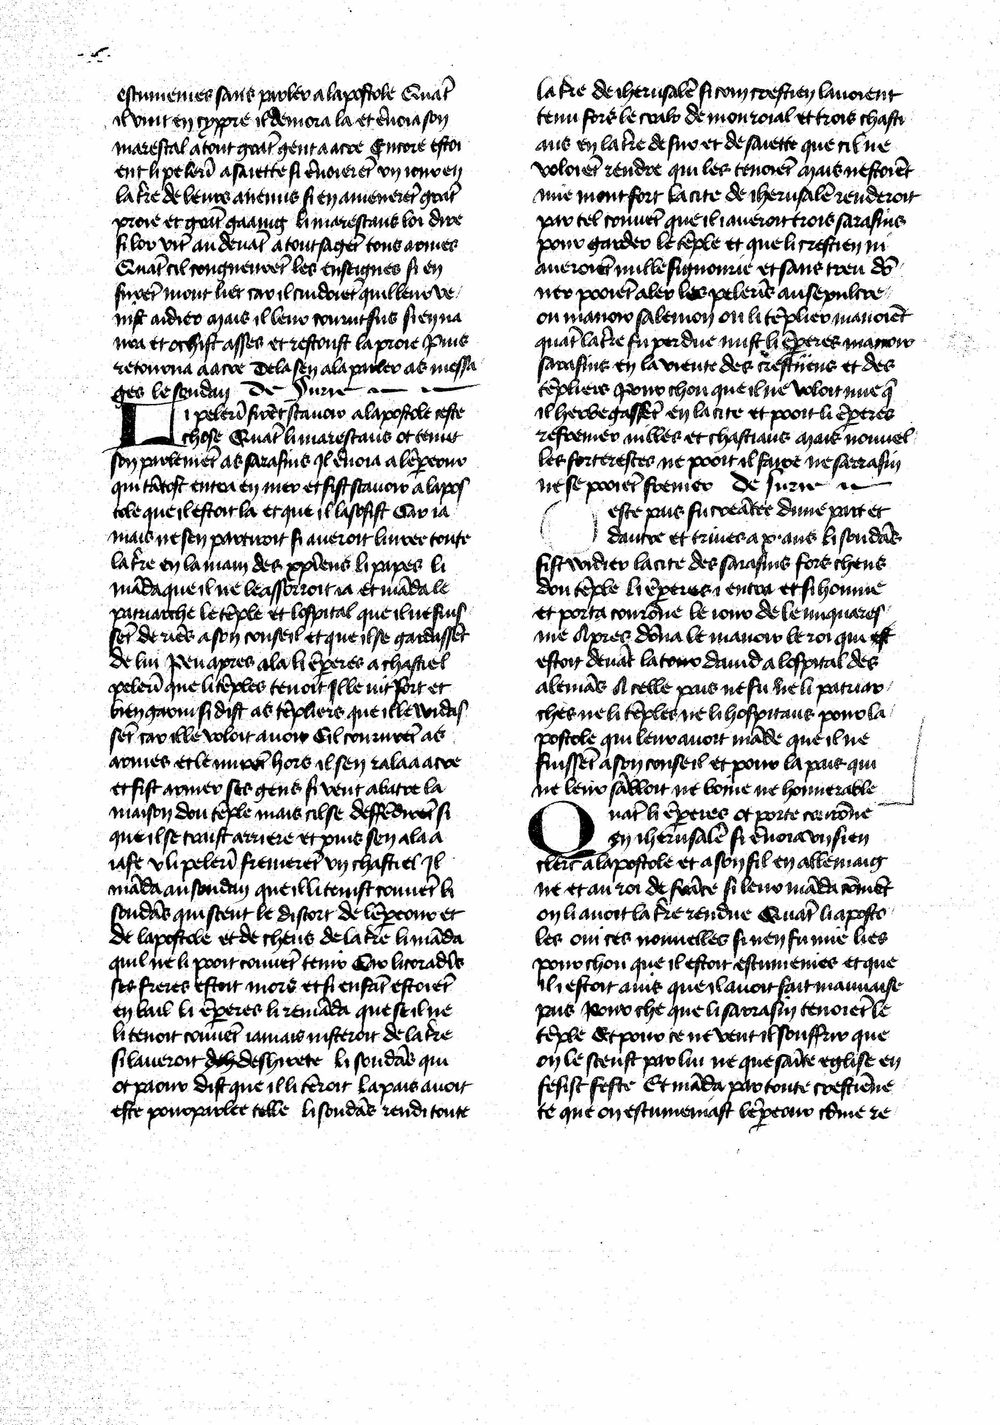 escumenies sans parler a lapostole Quāt
il vint en cypre il demora la et ēvoia son
marescal a tout grāt gent a acre Encore estoi
ent li pelerī a saiette si ēvoierēt un iour en
la t̄re de leurs anemis si en amenerēt grāt
proie et grāt gaaing li marescaus loi dire
si lor vīt au devāt a tout sa gēt tous armes
Quāt cil congneurēt les enseignes si en
furēt mout liet car il cuidoiēt quil leur ve
nist aidier Mais il leur courut sus si en na
vra et ochist asses et rescoust la proie Puis
retourna a acre De la sen ala parler as messa
ges le soudan De Surie
Li pelerī firēt scavoir a lapostole ceste
chose Quāt li marescaus ot tenut
son parlemēt as sarasins Il ēvoia a lēpeour
qui tātost entra en mer et fist scavoir a lapos
tole que il estoit la et que il lasosist Car ia
mais ne sen partiroit si averoit livree toute
la t̄re en la main des xp̄iens li papes li
māda que il ne le assorroit ia et māda le
patriarche le tēple et lospital que il ne fuis
sēt de riēs a son conseil et que il se gardassēt
de lui Peu apres ala li ēperes a chastiel
pelerī que li tēples tenoit Il le vit fort et
bien garni si dist as tēpliers que il le widas
sēt car il le voloit avoir Cil coururēt as
armes et le mirēt hors il sen rala a acre
et fist armer ses gens si vent abatre la
maison dou tēple mais cil se deffēdirēt si
que il se traist arriere et puis sen ala a
iafe u li pelerī fremerēt un chastiel Il
māda au soudan que il li tenist couvēt li
soudās qui scent le discort de lēpeour et
de lapostole et de cheus de la t̄re li māda
quil ne li pooit couvēt tenir Car li coradīs
ses freres estoit mors et si enfāt estoiēt
en bail li ēperes li remāda que se il ne
li tenoit couvēt iamais nisteroit de la t̄re
si laveroit deshirete li soudās qui
ot paour dist que il li tēroit La pais avoit
este pourparlee telle li soudās rendi toute
la t̄re de iherusalē si com crestien lavoient
tenu fors le crak de monroial et trois chasti
aus en la t̄re de sur et de saiette que cil ne
voloiēt rendre qui les tenoiēt Mais nestoiēt
mie mont fort la cite de iherusalē renderoit
par tel couvēt que il i averoit trois sarasins
pour garder le tēple et que li crestien ni
averoiēt nulle signourie et sans treu dō
ner pooiēt aler les pelerīs au sepulcre
ou manoir salemon ou li tēplier manoiēt
quāt la t̄re fu perdue mist li ēperes manoir
sarasins en la viente des crestiiens et des
tēpliers Pour chou que il ne voloit mie q̄
il herbegassēt en la cite et pooit li ēperes
refremer villes et chastiaus Mais nouvel
les forterestes ne pooit il faire ne sarrasin
ne se pooiēt fremer De Surie
este pais fu creātee dune part et
dautre et trives a x ans li soudās
fist widier la cite des sarasins fors cheus
dou tēple li ēperes i entra et si homme
et porta courōne le iour de le miquares
me Apres dōna le manoir le roi qui
estoit devāt la tour david a lospital des
alemās A celle pais ne fu ne li patriar
ches ne li tēples ne li hospitaus pour la
postole qui leur avoit māde que il ne
fuissēt a son conseil et pour la pais qui
ne leur sābloit ne bone ne honnerable
Quāt li ēperes ot porte courōne
en iherusalē si ēvoia un sien
clerc a lapostole et a son fil en allemaig
ne et au roi de frāce si leur māda cōmēt
on li avoit la t̄re rendue Quāt li aposto
les oui ces nouvelles si nen fu mie lies
pour chou que il estoit escumenies et que
il i estoit avis que il avoit fait mauvaise
pais Pour che que li sarrasin tenoiēt le
tēple Et pour ce ne vent il souffrir que
on le sceust par lui ne que saīte eglise en
fesist feste Et māda par toute crestiēne
te que on escumeniast lēpeour cōme re